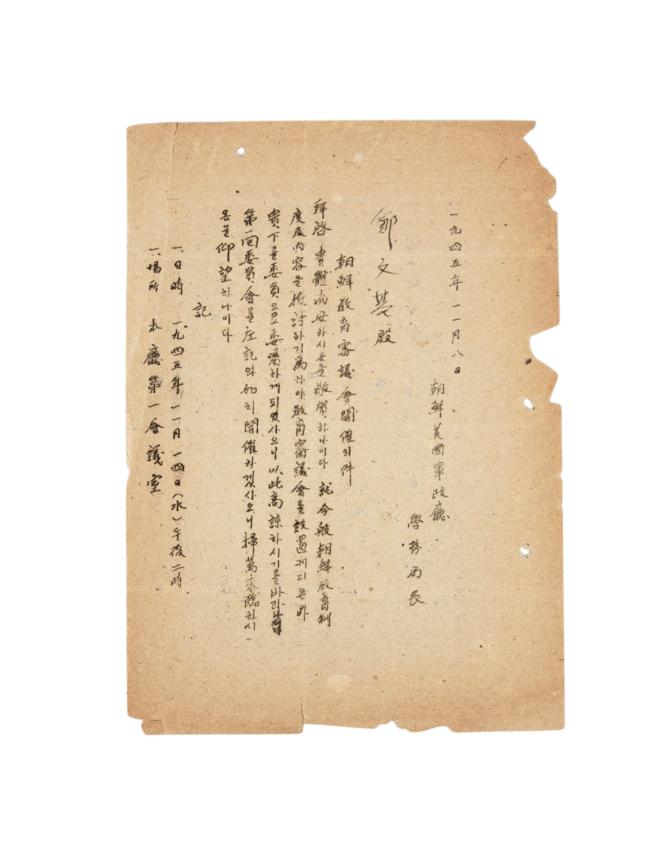 一九四五年 一一月八日
朝鮮美國軍政廳
學務局長
鄭文基 殿
朝鮮敎育審議會開催의件
拜啓 貴體 하시온 敬賀하나이다 就今般朝鮮敎育制
度及内容을檢討하기爲하야敎育審議會를設置게되온바
貴下를委員으로委囑하게되엿사오니以此高諒하시기를바라나
第一回委員會를左記와如히開催하겟사오니掃萬來臨하시
옵을仰望하나이다
記
一、日時 一九四五年一一月一四日(水)午後二時
一、場所 本廳第一會議室